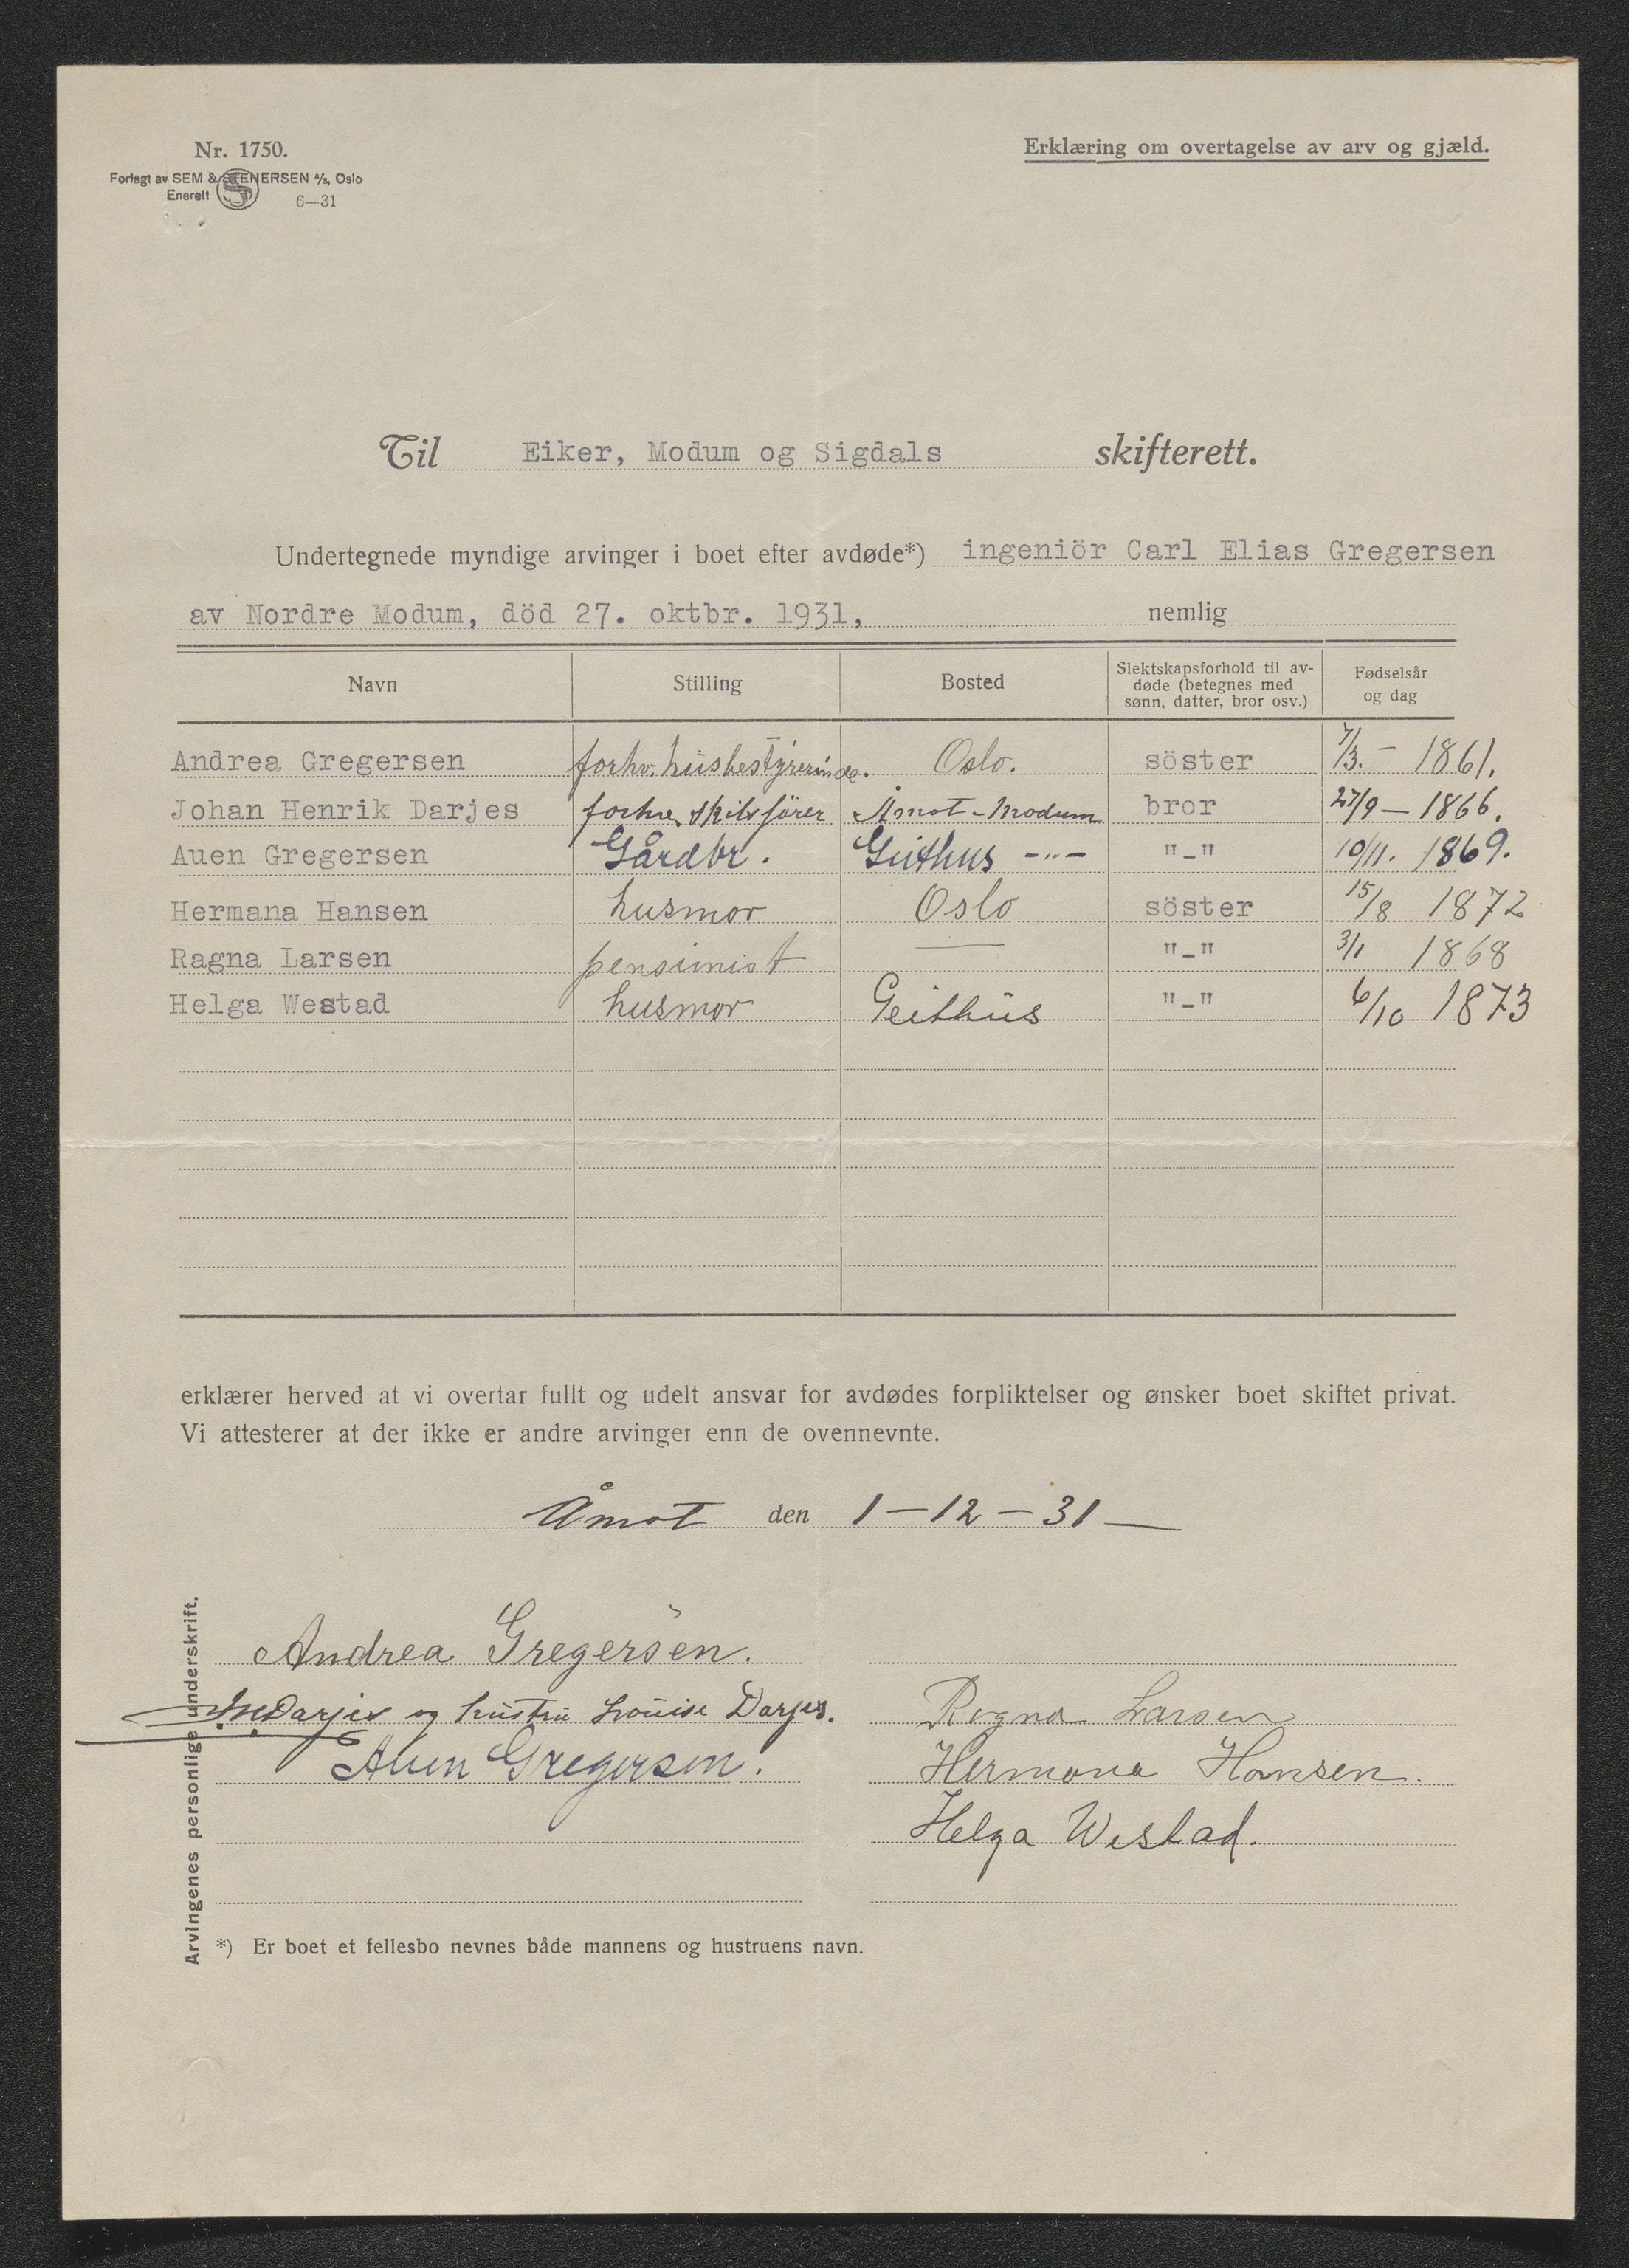 Nr. 1750.
Erklæring om overtagelse av arv og gjæld.
Forlagt av SEM & STENERSEN A/S, Oslo
Enerett 6—31
Til Eiker, Modum og Sigdals skifterett.
Undertegnede myndige arvinger i boet efter avdøde*) ingeniör Carl Elias Gregersen
av Nordre Modum, död 27. oktbr. 1931, nemlig
Navn Stilling Bosted Slektskapsforhold til avdøde (betegnes med sønn, datter, bror osv.) Fødselsår og dag
Andrea Gregersen forhv. husbestyrerinde. Oslo. söster 7/3. – 1861.
Johan Henrik Darjes forhv. skibsförer Åmot - Modum bror 27/9 – 1866.
Auen Gregersen Gårdbr. Geithus -"- "-" 10/11. 1869.
Hermana Hansen husmor Oslo söster 15/8 1872
Ragna Larsen pensionist — "-" 3/1 1868
Helga Westad husmor Geithus "-" 6/10 1873
erklærer herved at vi overtar fullt og udelt ansvar for avdødes forpliktelser og ønsker boet skiftet privat.
Vi attesterer at der ikke er andre arvinger enn de ovennevnte.
Åmot den 1 – 12 – 31 —
Arvingenes personlige underskrift.
Andrea Gregersen.
Darjes og hustru Lovise Darjes. Ragna Larsen
Auen Gregersen. Hermana Hansen.
Helga Westad.
*) Er boet et fellesbo nevnes både mannens og hustruens navn.